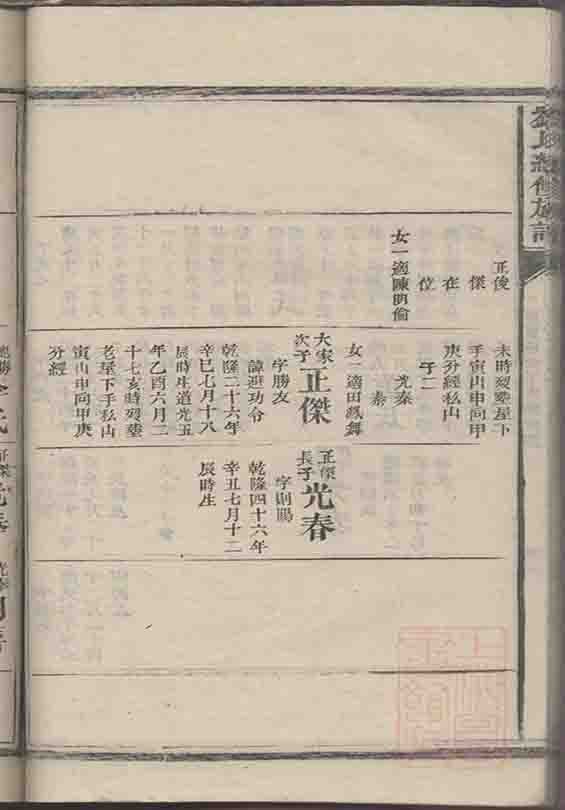 氏總修族譜
正俊
傑
在
位
女一適陳明倫
未時歿塟星下
手寅山申向甲
庚分經私山
子二
光泰
泰
女一適田鳳舞
大宋
次子
正傑
字勝友
諱遊功令
乾隆二十六年
辛巳七月十八
辰時生道光五
年乙酉六月二
十七亥時歿塟
老星下手私山
寅山申向甲庚
分經
正傑
長子
光春
字則陽
乾隆四十六年
辛丑七月十二
辰時生